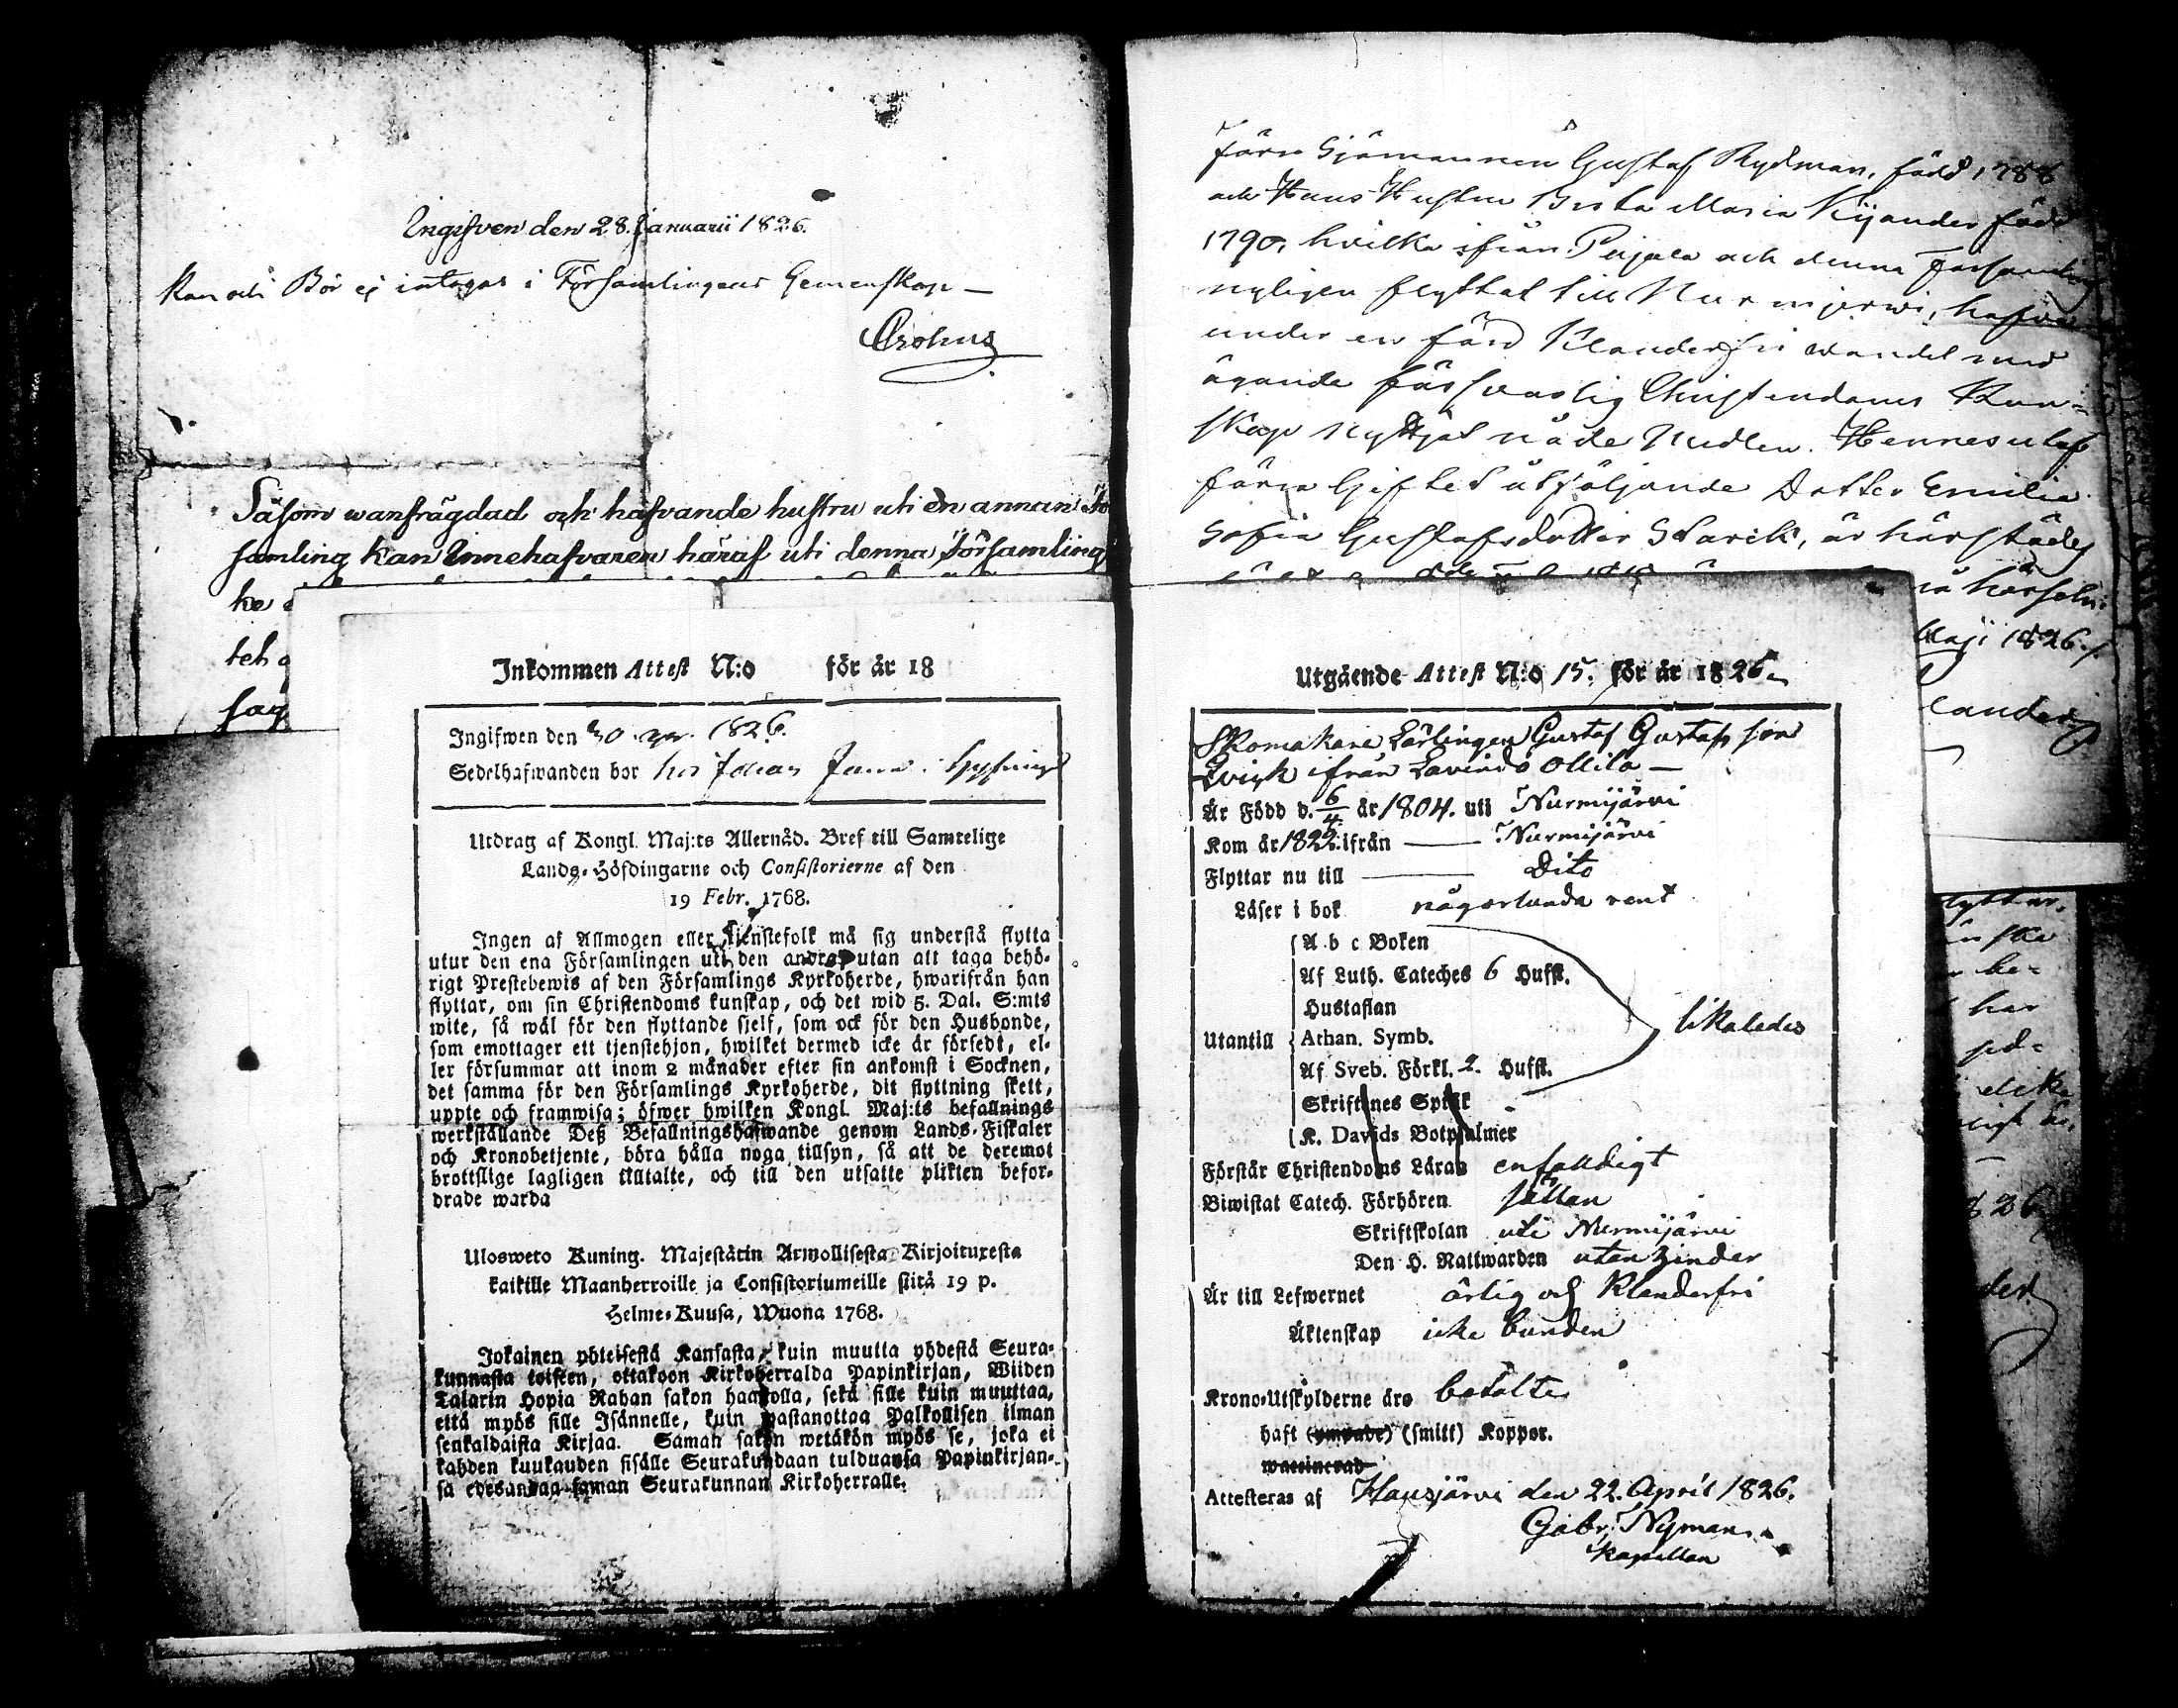 Ingifven den 28. Januarii 1826.
Kan och Bör ej intagas i Församlingens Gemenskap —
Crohns
Såsom wanfrägdad och hafvande hustru uti en annan För
samling kan Innehafvaren häraf uti denna Församling
ke
teh
sag
Förre Sjömannen Gustaf Rydman, född 1788
och Hans Hustru Brita Maria Kijander född
1790, hvilka ifrån Perjala och denna Församling
nyligen flyttat till Nurmijerwi, hafva
under en förd Klanderfri wandel med
ägande försvarlig Christendoms Kun=
skap nyttjat nåde Medlen. Hennes utaf
förra Giftet åtföljande Dotter Emilia
Sofia Gustafsdotter Starck, är härstädes
Maji 1826.
lander
Inkommen Attest N:o för år 18
Ingifwen den 30. 1826.
Sedelhafwanden bor hos Johan i
Utdrag af Kongl. Maj:ts Allernåd. Bref till Samtelige
Lands-Höfdingarne och Consistorierne af den
19 Febr. 1768.
Ingen af Allmogen eller tjenstefolk må sig understå flytta
utur den ena Församlingen uti den andra, utan att taga behö-
rigt Prestebewis af den Församlings Kyrkoherde, hwarifrån han
flyttar, om sin Christendoms kunskap, och det wid 5. Dal. S:mts
wite, så wäl för den flyttande sjelf, som ock för den Husbonde,
som emottager ett tjenstehjon, hwilket dermed icke är försedt, el-
ler försummar att inom 2 månader efter sin ankomst i Socknen,
det samma för den Församlings Kyrkoherde, dit flyttning skett,
uppte och framwisa; öfwer hwilken Kongl. Maj:ts befallnings
werkställande Deß Befallningshafwande genom Lands-Fiskaler
och Kronobetjente, böra hålla noga tillsyn, så att de deremot
brottslige lagligen tilltalte, och till den utsatte plikten befor-
drade warda
Ulosweto Kuning. Majestätin Armollisesta Kirjoituxesta
kaikille Maanherroille ja Consistoriumeille siitä 19 p.
Helme-Kuusa, Wuona 1768.
Jokainen yhteisestä Kansasta, kuin muutta yhdestä Seura-
kunnasta toiseen, ottakoon Kirkoherralda Papinkirjan, Wiiden
Talarin Hopia Rahan sakon haastolla, sekä sille kuin muuttaa,
että myös sille Isännelle, kuin wastanottaa Palkollisen ilman
senkaldaista Kirjaa. Saman sakon wetäkön myös se, joka ei
kahden kuukauden sisälle Seurakundaan tulduansa Papinkirjan-
sa edesandaa saman Seurakunnan Kirkoherralle.
Utgående Attest N:o 15. för år 1826.
Skomakare Lärlingen Gustaf Gustafs son
Qvigk ifrån Lavindo Ollila —
Är Född d. 6/4. år 1804. uti Nurmijärvi
Kom år 1822. ifrån — Nurmijärvi
Flyttar nu till — Dito
Läser i bok någorlunda rent
A b c Boken
Af Luth. Cateches 6 Hufst.
Hustaflan
Utantill Athan. Symb. likaledes
Af Sveb. Förkl. 2. Hufst.
Skriftenes Språk
K. Davids Botpsalmer
Förstår Christendoms Läran enfaldigt
Biwistat Catech. Förhören sällan
Skriftskolan uti Nurmijärvi
Den H. Nattwarden utan hinder
Är till Lefwernet ärlig och Klanderfri
Äktenskap icke bunden
Krono-Utskylderne äro betalte
haft (ympade) (smitt) Koppor.
waccinerad
Attesteras af Hausjärvi den 22. April 1826.
Gabr. Nyman
Kapellan